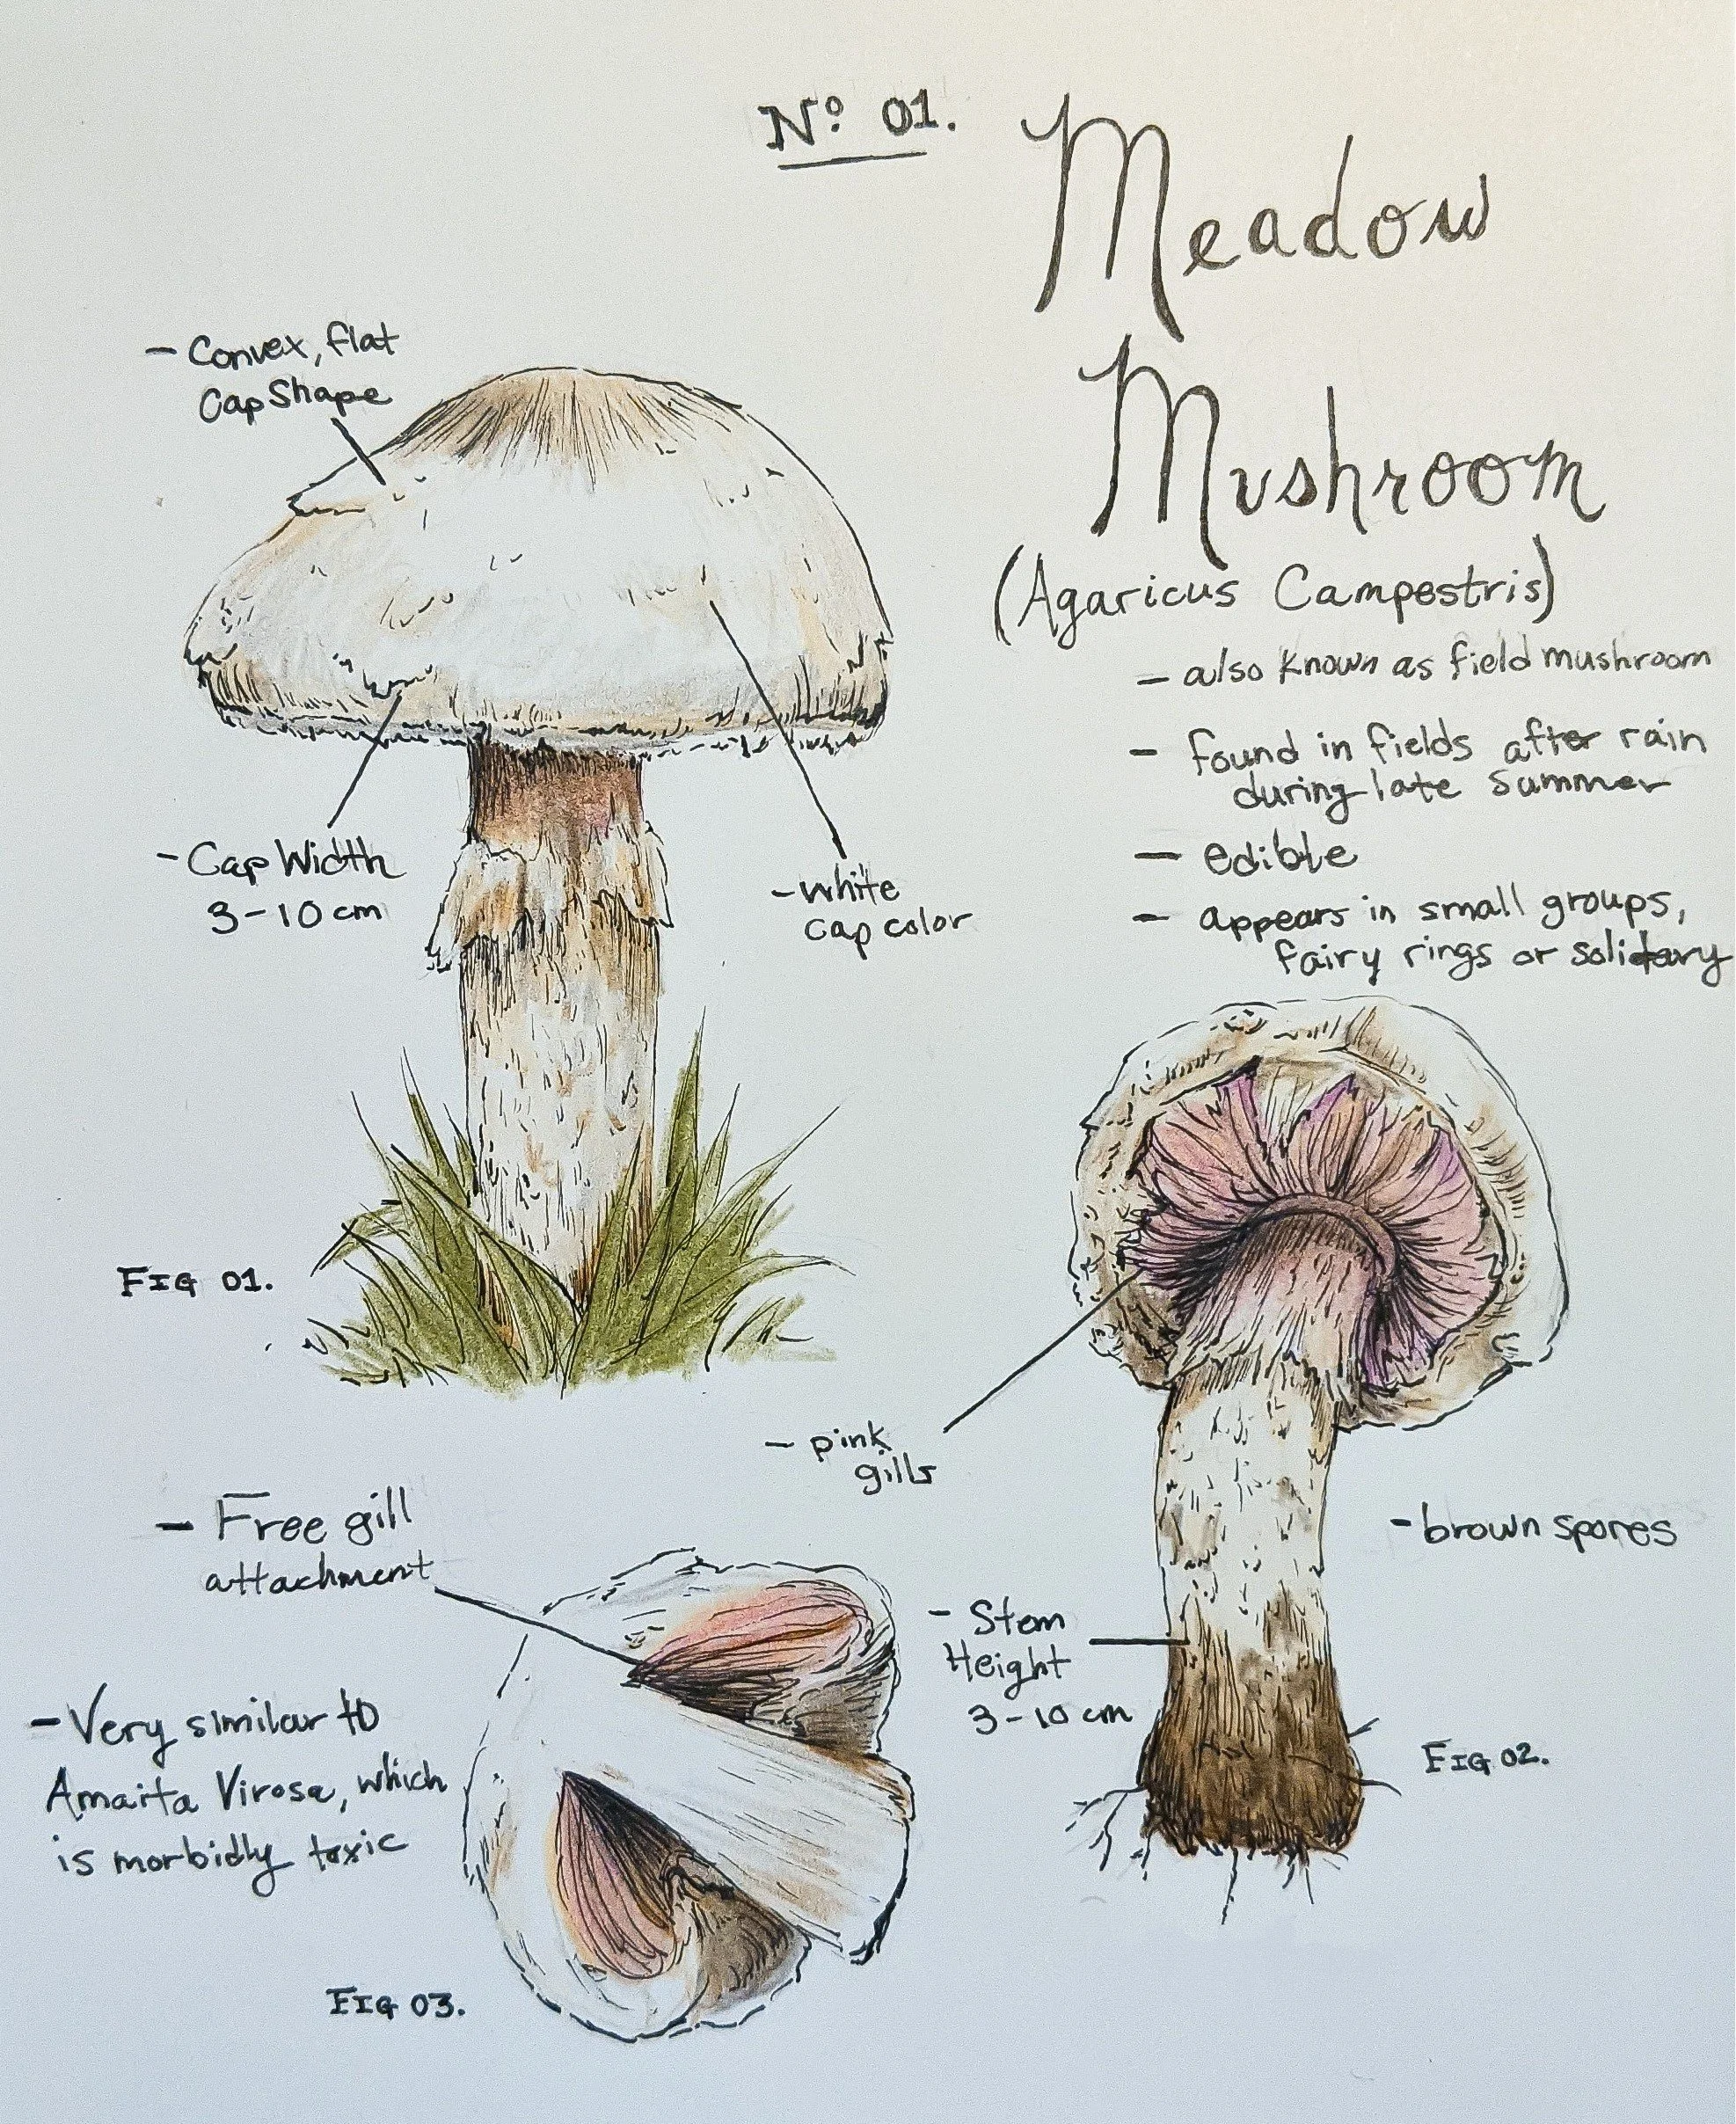 Nº 01.
Meadow
Mushroom
(Agaricus Campestris)
- also known as field mushroom
- found in fields after rain
during late summer
- edible
- appears in small groups,
fairy rings or solitary
- Convex, flat
Cap Shape
- Cap Width
3-10 cm
- white
cap color
FIG 01.
- pink
gills
- brown spores
- Stem
Height
3-10 cm
FIG 02.
- Free gill
attachment
- Very similar to
Amaita Virosa, which
is morbidly toxic
FIG 03.